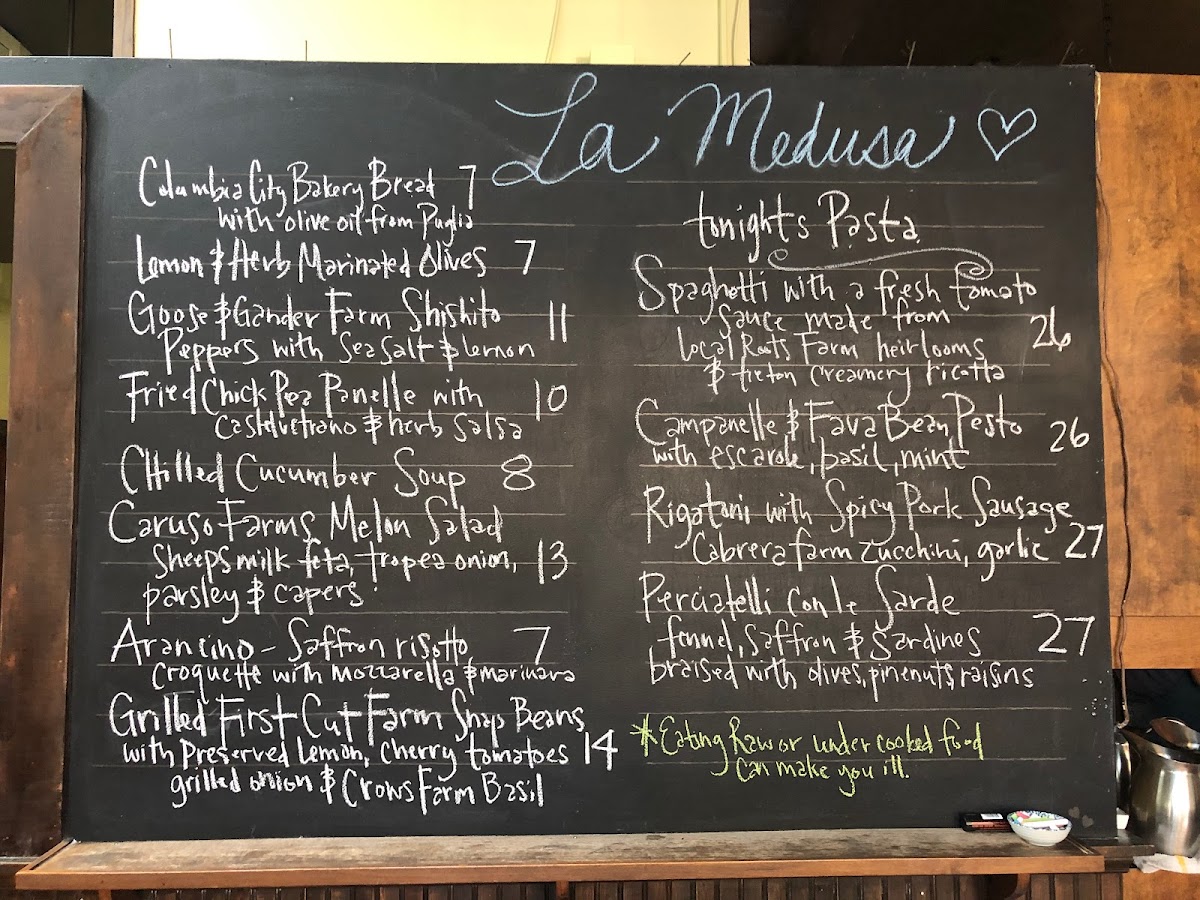 La Medusa
Columbia City Bakery Bread 7
with olive oil from Puglia
Lemon & Herb Marinated Olives 7
Goose & Gander Farm Shishito 11
Peppers with Sea Salt & lemon
Fried Chick Pea Panelle with 10
Castelvetrano & herb salsa
CHilled Cucumber Soup 8
Caruso Farms Melon Salad
Sheeps milk feta, tropea onion, 13
parsley & capers
Arancino - Saffron risotto 7
Croquette with Mozzarella & marinara
Grilled First Cut Farm Snap Beans
with Preserved Lemon, cherry tomatoes 14
grilled onion & Crows Farm Basil
tonights Pasta
Spaghetti with a fresh tomato
Sauce made from 26
Local Roots Farm heirlooms
& tieton creamery ricotta
Campanelle & Fava Bean Pesto 26
with escarole, basil, mint
Rigatoni with Spicy Pork Sausage
Cabrera farm zucchini, garlic 27
Perciatelli Con le Sarde
fennel, saffron & sardines 27
braised with olives, pinenuts, raisins
*Eating Raw or under cooked food
can make you ill.